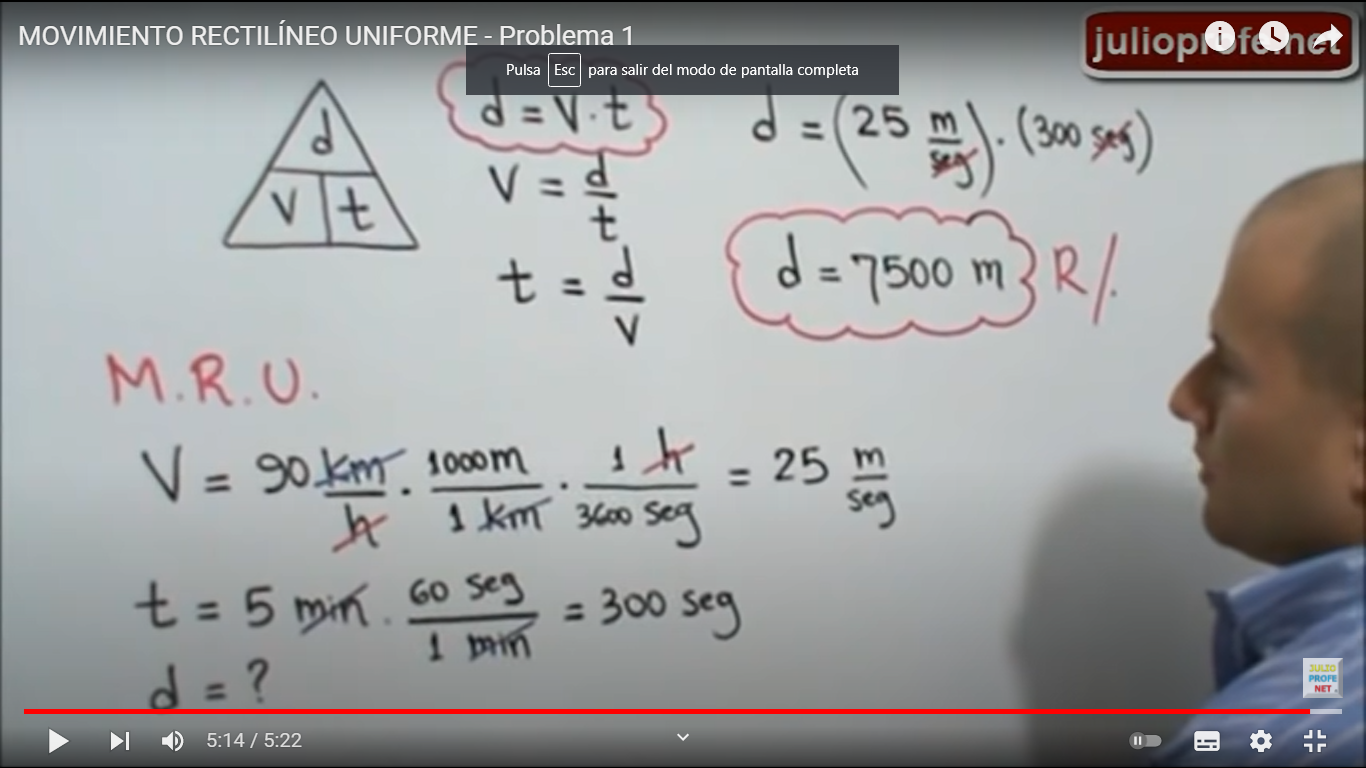 MOVIMIENTO RECTILÍNEO UNIFORME - Problema 1
julioprofe.net
Pulsa Esc para salir del modo de pantalla completa
d
V t
d = V · t
V = d/t
t = d/V
d = (25 m/seg) · (300 seg)
d = 7500 m R/.
M.R.U.
V = 90 km/h · 1000m/1 km · 1 h/3600 seg = 25 m/seg
t = 5 min · 60 seg/1 min = 300 seg
d = ?
JULIO
PROFE
NET
5:14 / 5:22